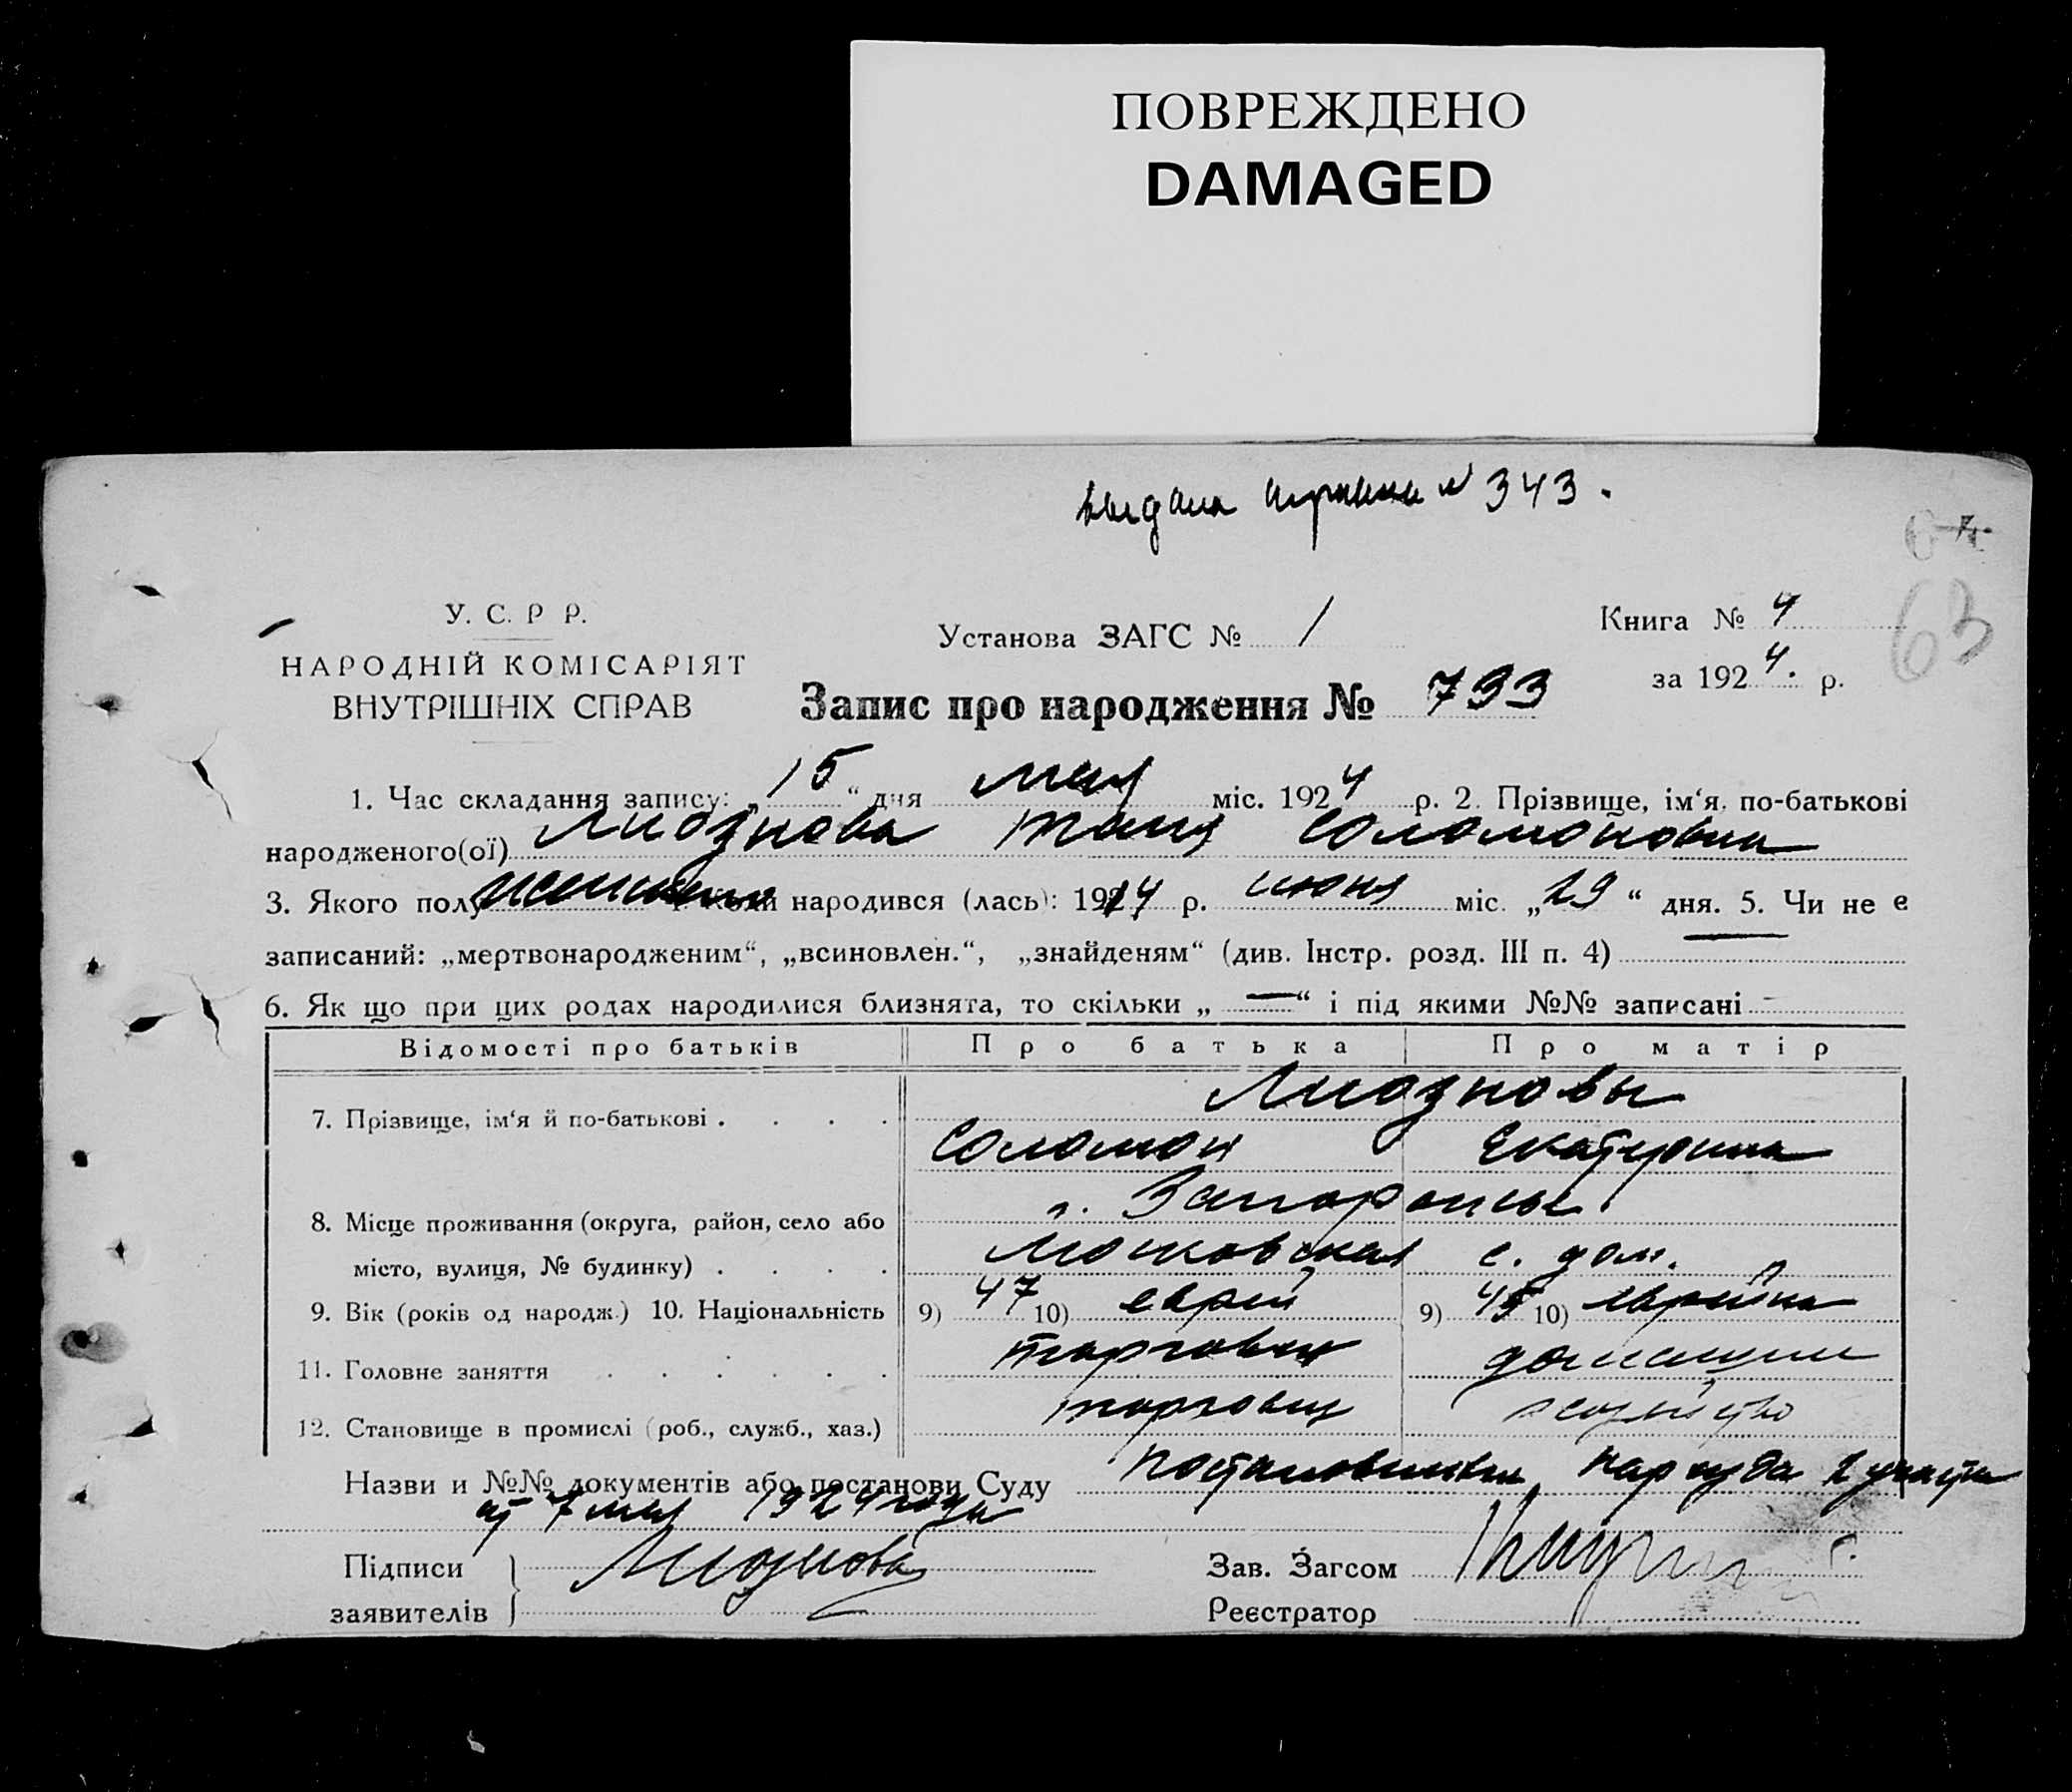 ПОВРЕЖДЕНО
DAMAGED
выдана справка № 343.
63
У. С. Р Р.
НАРОДНІЙ КОМІСАРІЯТ
ВНУТРІШНІХ СПРАВ
Установа ЗАГС № 1
Книга № 4
за 1924. р.
Запис про народження № 793
1. Час складання запису: „15“ дня мая міс. 1924 р. 2. Прізвище, ім‘я, по-батькові
народженого(ої) Лиознова Таня Соломоновна
3. Якого полу женского народився (лась): 1914 р. июня міс. „29“ дня. 5. Чи не є
записаний: „мертвонародженим“, „всиновлен.“, „знайденям“ (див. Інстр. розд. III п. 4) —
6. Як що при цих родах народилися близнята, то скільки „—“ і під якими №№ записані -
Відомості про батьків Про батька Про матір
Лиозновы
7. Прізвище, ім‘я й по-батькові . . . .
Соломон Екатерина
г. Запорожье
8. Місце проживання (округа, район, село або
місто, вулиця, № будинку) . . . .
Московская с. дом.
9. Вік (років од народж.) 10. Національність 9) 47 10) еврей 9) 45 10) еврейка
11. Головне заняття . . . . . . торговец домашнее
12. Становище в промислі (роб., служб., хаз.) торговец хозяйство
Назви и №№ документів або постанови Суду Постановления Нарсуда 2 участка
от 7 мая 1924 года
Підписи
заявителів
Лиознова
Зав. Загсом
Реєстратор